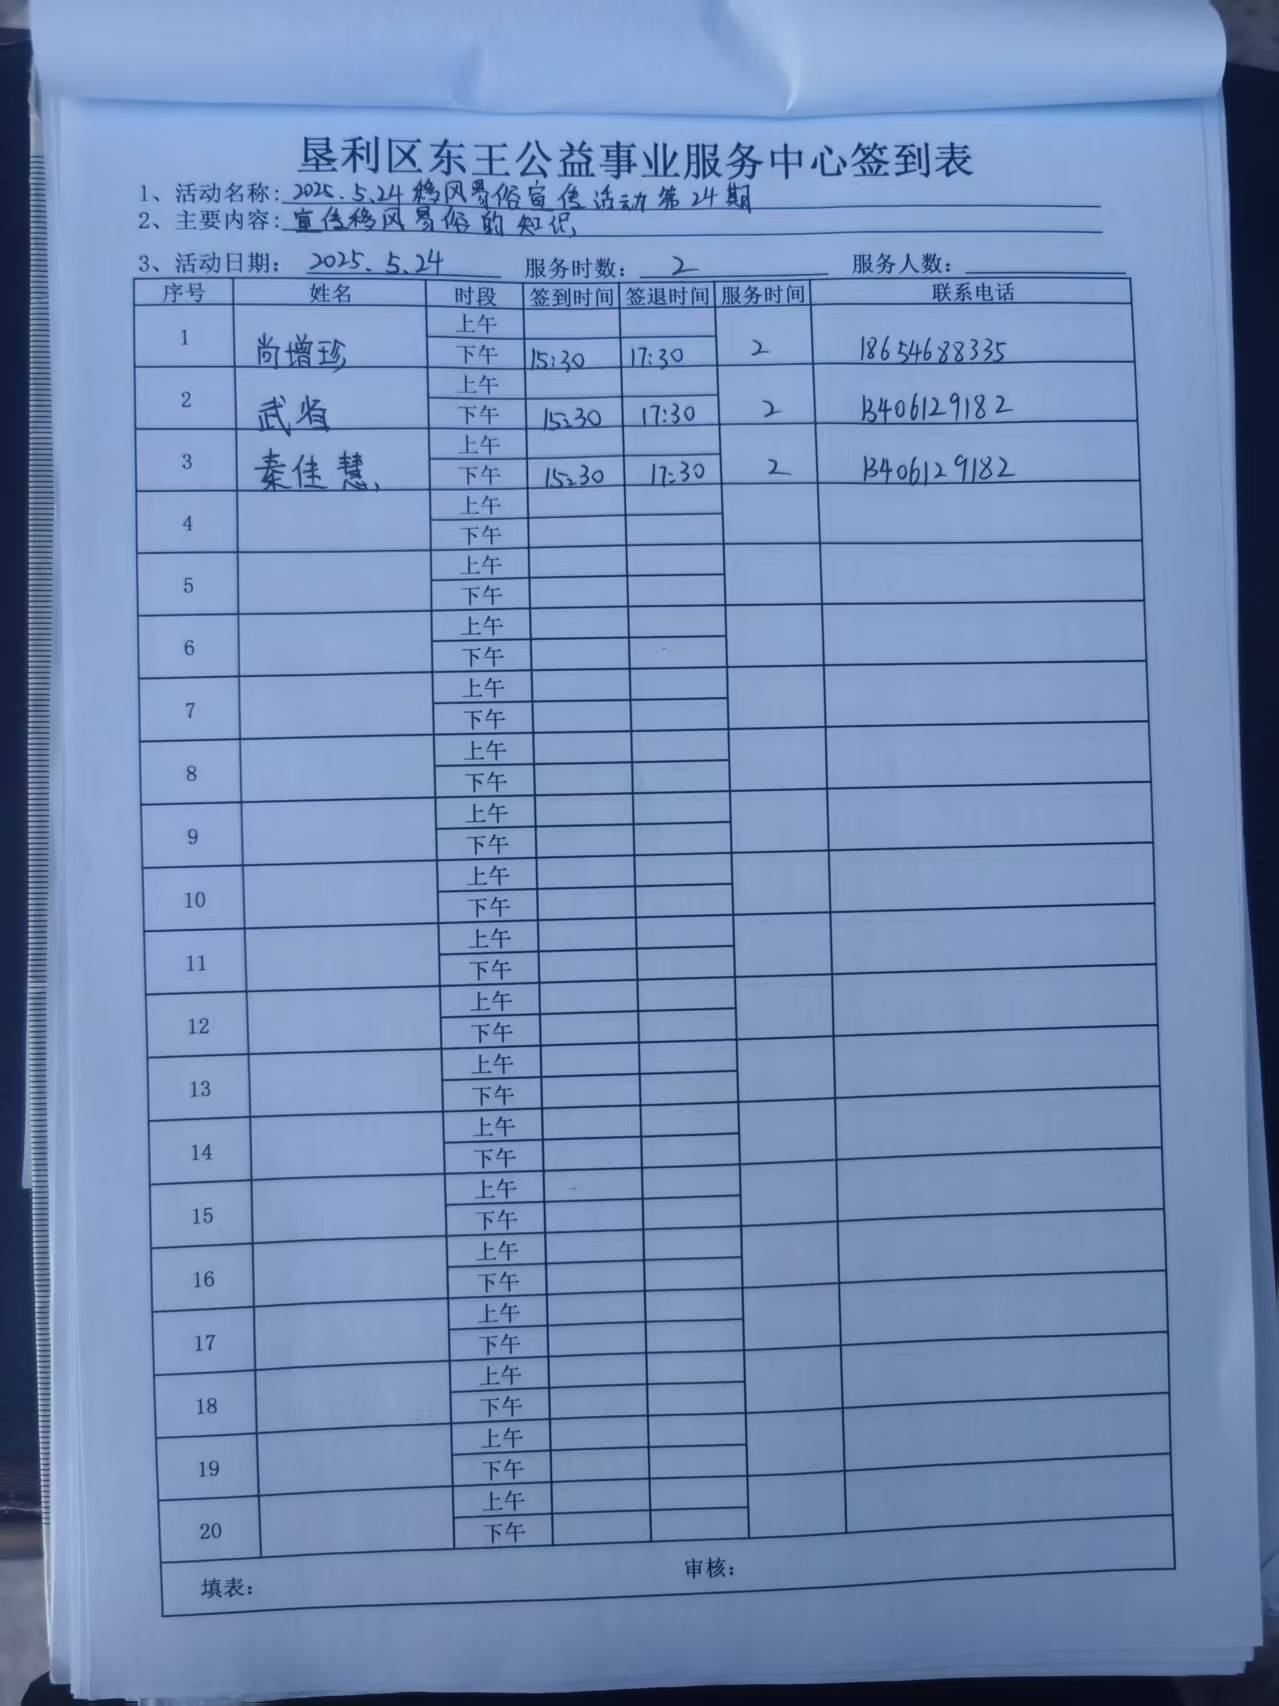 垦利区东王公益事业服务中心签到表
1、活动名称: 2025.5.24移风易俗宣传活动第24期
2、主要内容: 宣传移风易俗的知识
3、活动日期: 2025.5.24 服务时数: 2 服务人数:
序号 姓名 时段 签到时间 签退时间 服务时间 联系电话
1 尚增珍 上午
下午 15:30 17:30 2 18654688335
2 武 上午
下午 15:30 17:30 2 13406129182
3 秦佳慧 上午
下午 15:30 17:30 2 13406129182
4 上午
下午
5 上午
下午
6 上午
下午
7 上午
下午
8 上午
下午
9 上午
下午
10 上午
下午
11 上午
下午
12 上午
下午
13 上午
下午
14 上午
下午
15 上午
下午
16 上午
下午
17 上午
下午
18 上午
下午
19 上午
下午
20 上午
下午
填表: 审核: